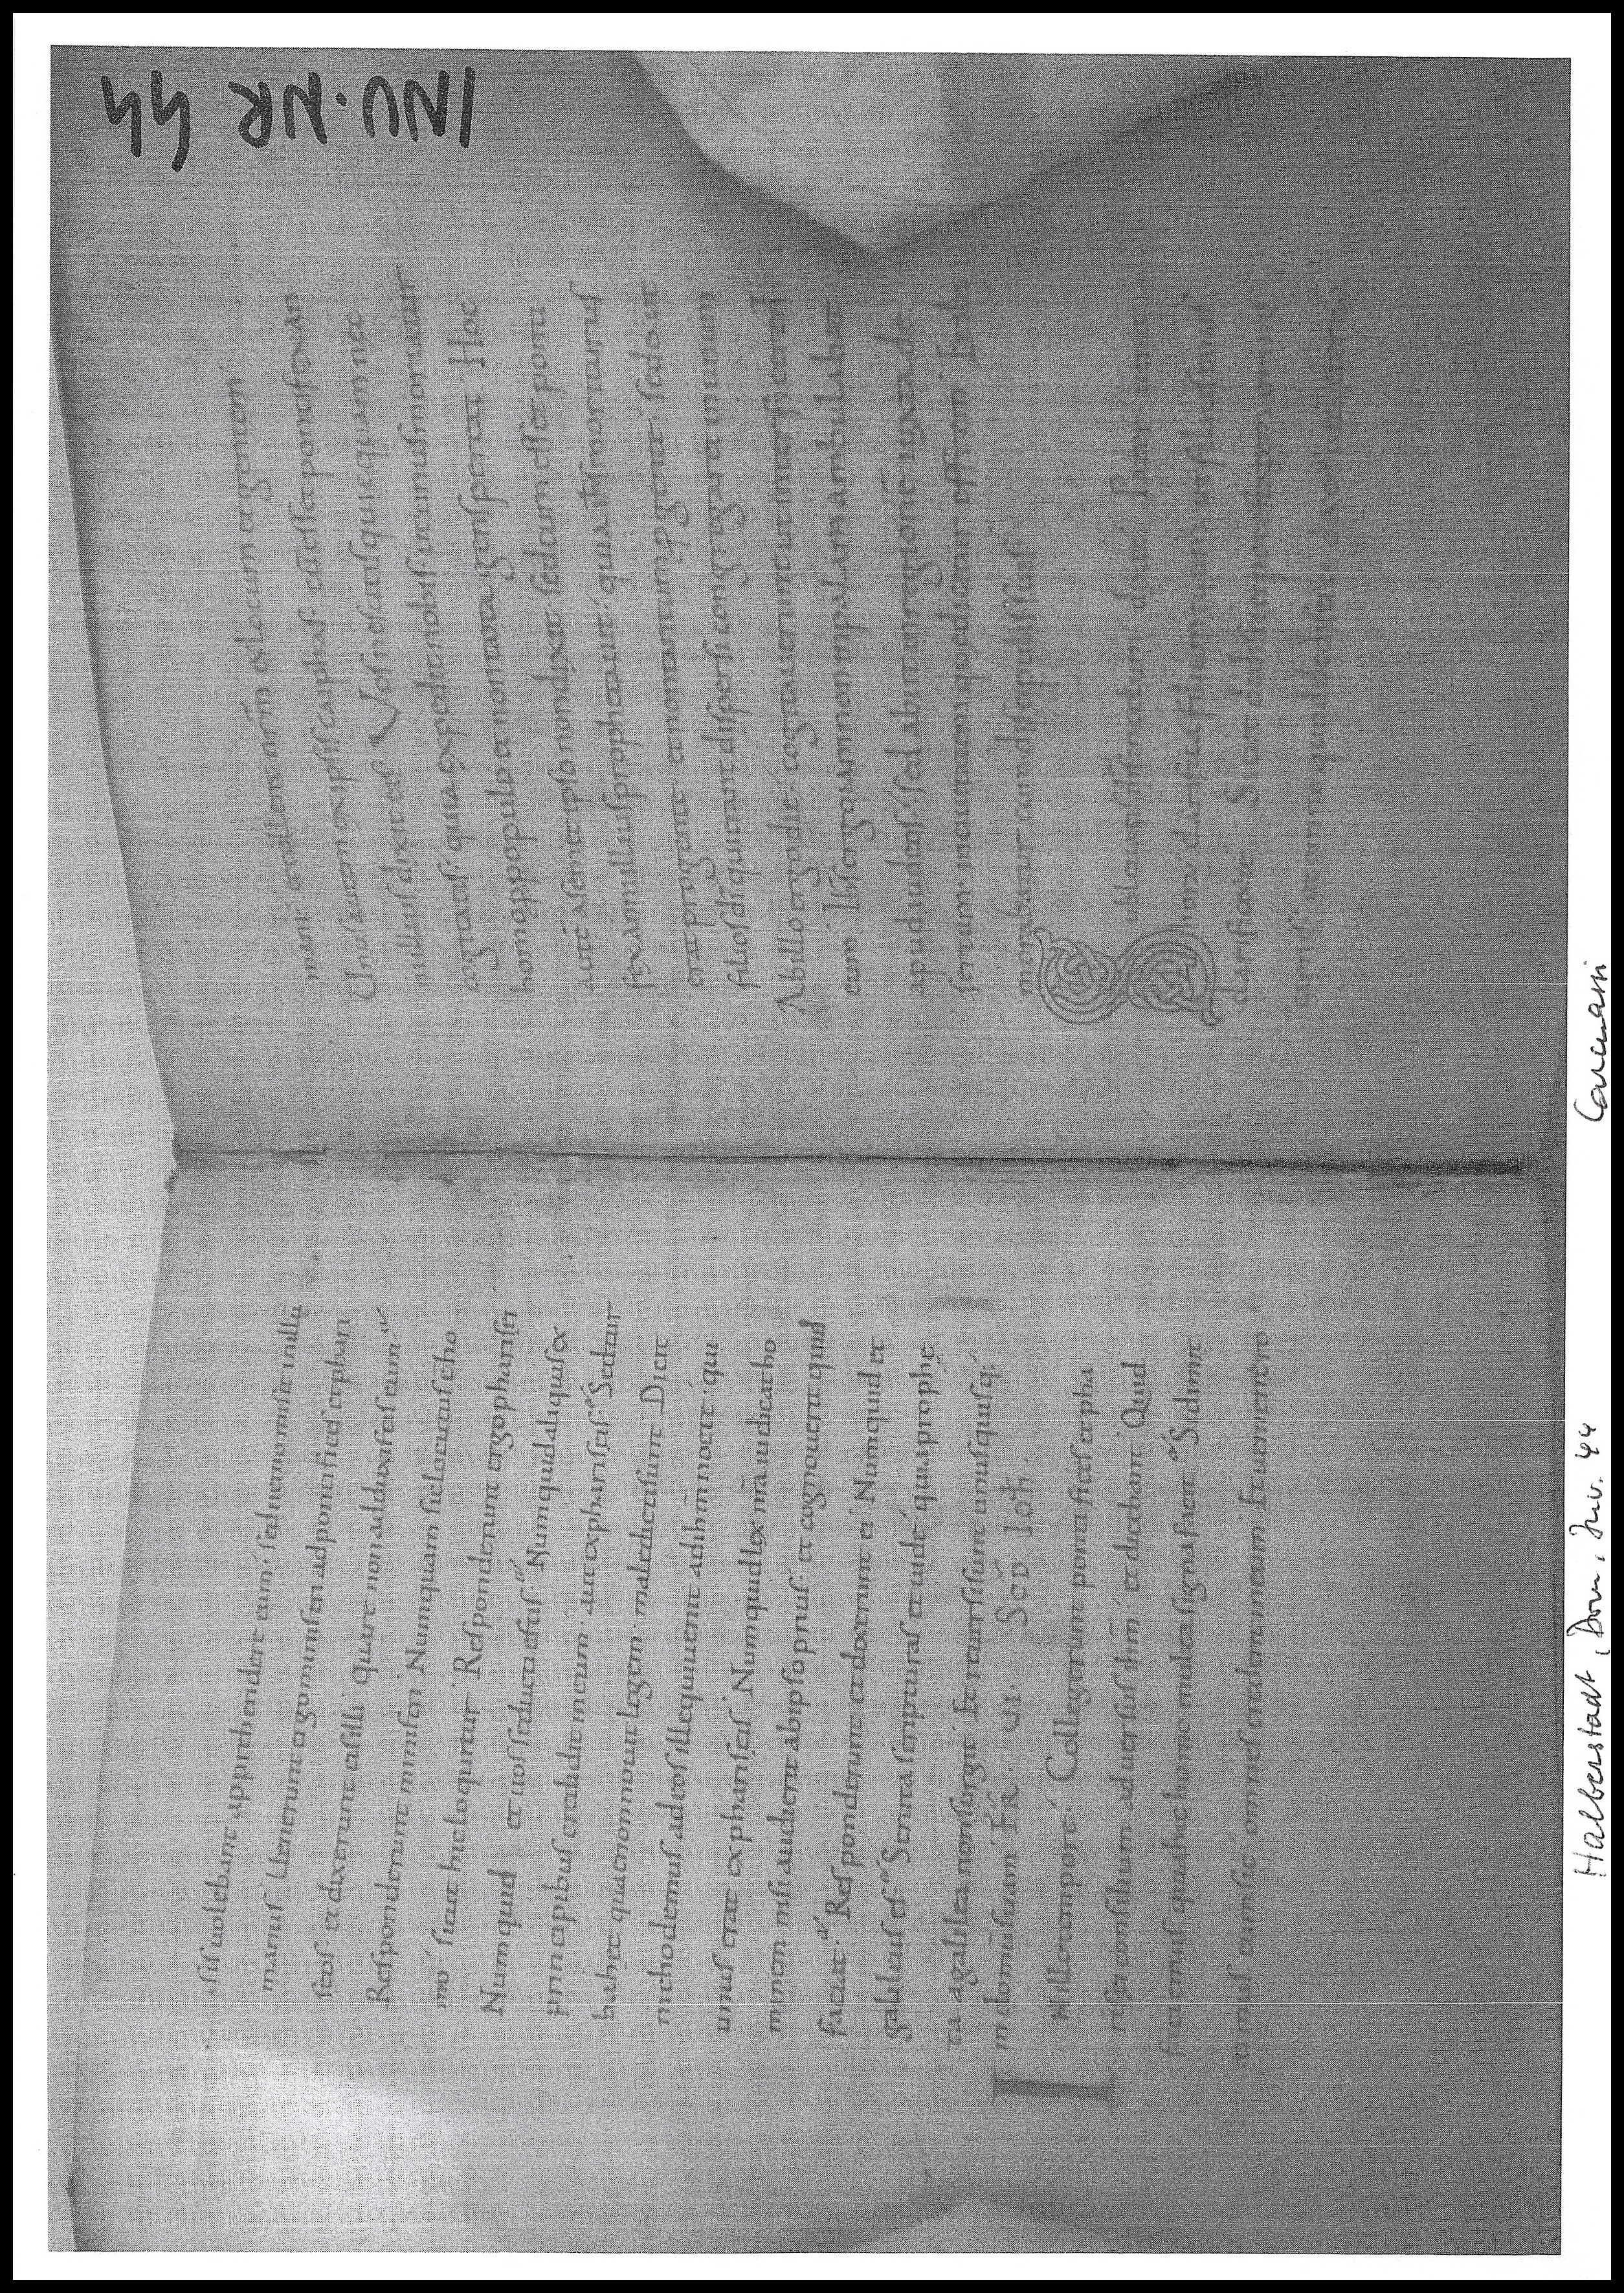 INV·NR 44
sis uolebant apprehendere eum, sed nemo misit in illū
manus. Uenerunt ergo ministri ad pontifices et phari
seos. et dixerunt eis illi. Quare non adduxistis eum.
Responderunt ministri. Numquam sic locutus est ho
mo, sicut hic loquitur. Responderunt ergo pharisei.
Numquid et uos seducti estis. Numquid aliquis ex
principibus credidit in eum. aut ex phariseis. Sed tur
ba hec quae non nouit legem, maledicti sunt. Dicit
nichodemus ad eos ille qui uenit ad ihm nocte, qui
unus erat ex phariseis. Numquid lex nrā iudicat ho
minem nisi audierit ab ipso prius. et cognouerit quid
faciat. Responderunt et dixerunt ei. Numquid et
galileus es. Scrutare scripturas et uide, quia prophe
ta a galilea non surgit. Et reuersi sunt unusquisq;
in domū suam. FR. VI. Scđ Ioħ.
In illo tempore. Collegerunt pontifices et pha
risei consilium aduersus ihm. et dicebant. Quid
facimus quia hic homo multa signa facit. Si dimit
timus eum sic omnes credent in eum. Et uenient ro
mani. et tollent nr̄m et locum et gentem.
Unus autem ex ipsis caiphas cū esset pontifex an
ni illius dixit eis. Uos nescitis quicquam nec
cogitatis. quia expedit nobis ut unus moriatur
homo p populo et non tota gens pereat. Hoc
aute a semet ipso non dixit. sed cum esset ponti
fex anni illius prophetauit. quia ihs moriturus
erat pro gente. et non tantum p gente. sed ut
filios di qui erant dispersi congregaret in unum.
Ab illo ergo die, cogitauerunt ut interficerent
eum. Ihs ergo iam non in palam ambulabat
apud iudeos. sed abiit in regionē iuxta de
sertum. in ciuitatem que dicitur effrem. Et ibi
morabatur cum discipulis suis.
Halberstadt, Dom, Inv. 44